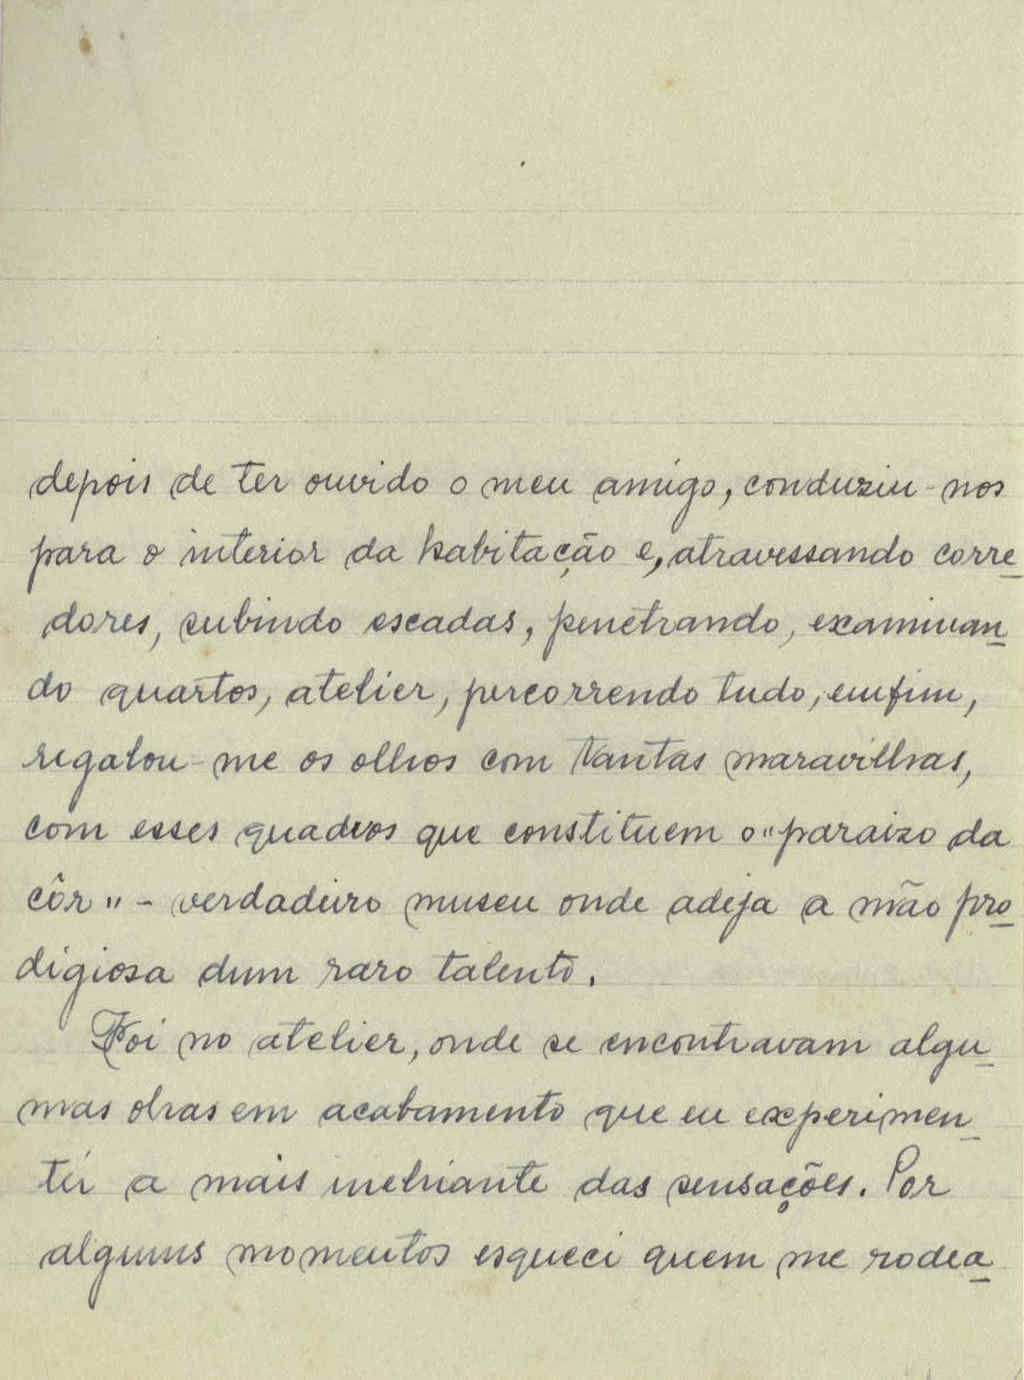 depois de ter ouvido o meu amigo, conduziu-nos
para o interior da habitação e, atravessando corre-
dores, subindo escadas, penetrando, examinan-
do quartos, atelier, percorrendo tudo, emfim,
regalou-me os olhos com tantas maravilhas,
com esses quadros que constituem o "paraizo da
côr" - verdadeiro museu onde adeja a mão pro-
digiosa dum raro talento.
Foi no atelier, onde se encontravam algu-
mas obras em acabamento que eu experimen-
tei a mais inebriante das sensações. Por
alguns momentos esqueci quem me rodea-